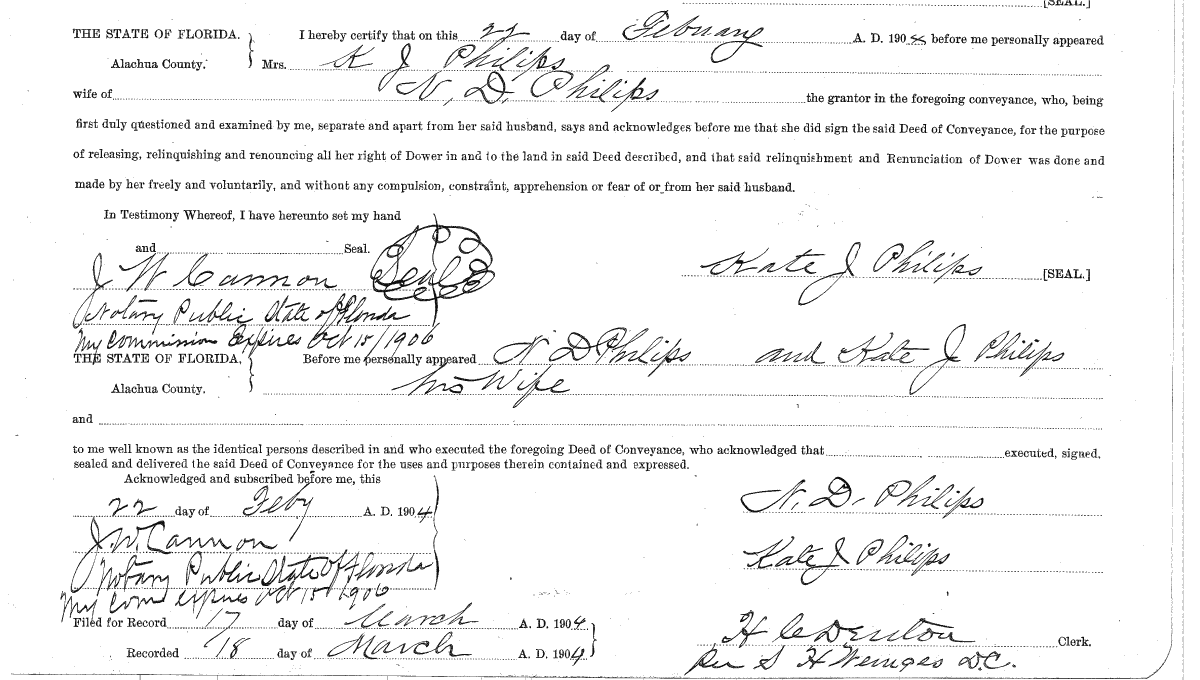 [SEAL.]
THE STATE OF FLORIDA. I hereby certify that on this 22 day of February A. D. 190 before me personally appeared
Alachua County. Mrs. K J Philips
wife of N. D. Philips the grantor in the foregoing conveyance, who, being
first duly questioned and examined by me, separate and apart from her said husband, says and acknowledges before me that she did sign the said Deed of Conveyance, for the purpose
of releasing, relinquishing and renouncing all her right of Dower in and to the land in said Deed described, and that said relinquishment and Renunciation of Dower was done and
made by her freely and voluntarily, and without any compulsion, constraint, apprehension or fear of or from her said husband.
In Testimony Whereof, I have hereunto set my hand
and Seal.
J W Cannon Seal Kate J Philips [SEAL.]
Notary Public State of Florida
My Commission Expires Oct 15/1906
THE STATE OF FLORIDA. Before me personally appeared N D Philips and Kate J Philips
Alachua County. his Wife
and
to me well known as the identical persons described in and who executed the foregoing Deed of Conveyance, who acknowledged that executed, signed,
sealed and delivered the said Deed of Conveyance for the uses and purposes therein contained and expressed.
Acknowledged and subscribed before me, this
22 day of Feby A. D. 1904 N. D. Philips
J. W. Cannon
Notary Public State of Florida Kate J Philips
My Com expires Oct 15 1906
Filed for Record 17 day of March A. D. 1904
H C Denton Clerk.
Recorded 18 day of March A. D. 1904 Per S H D.C.